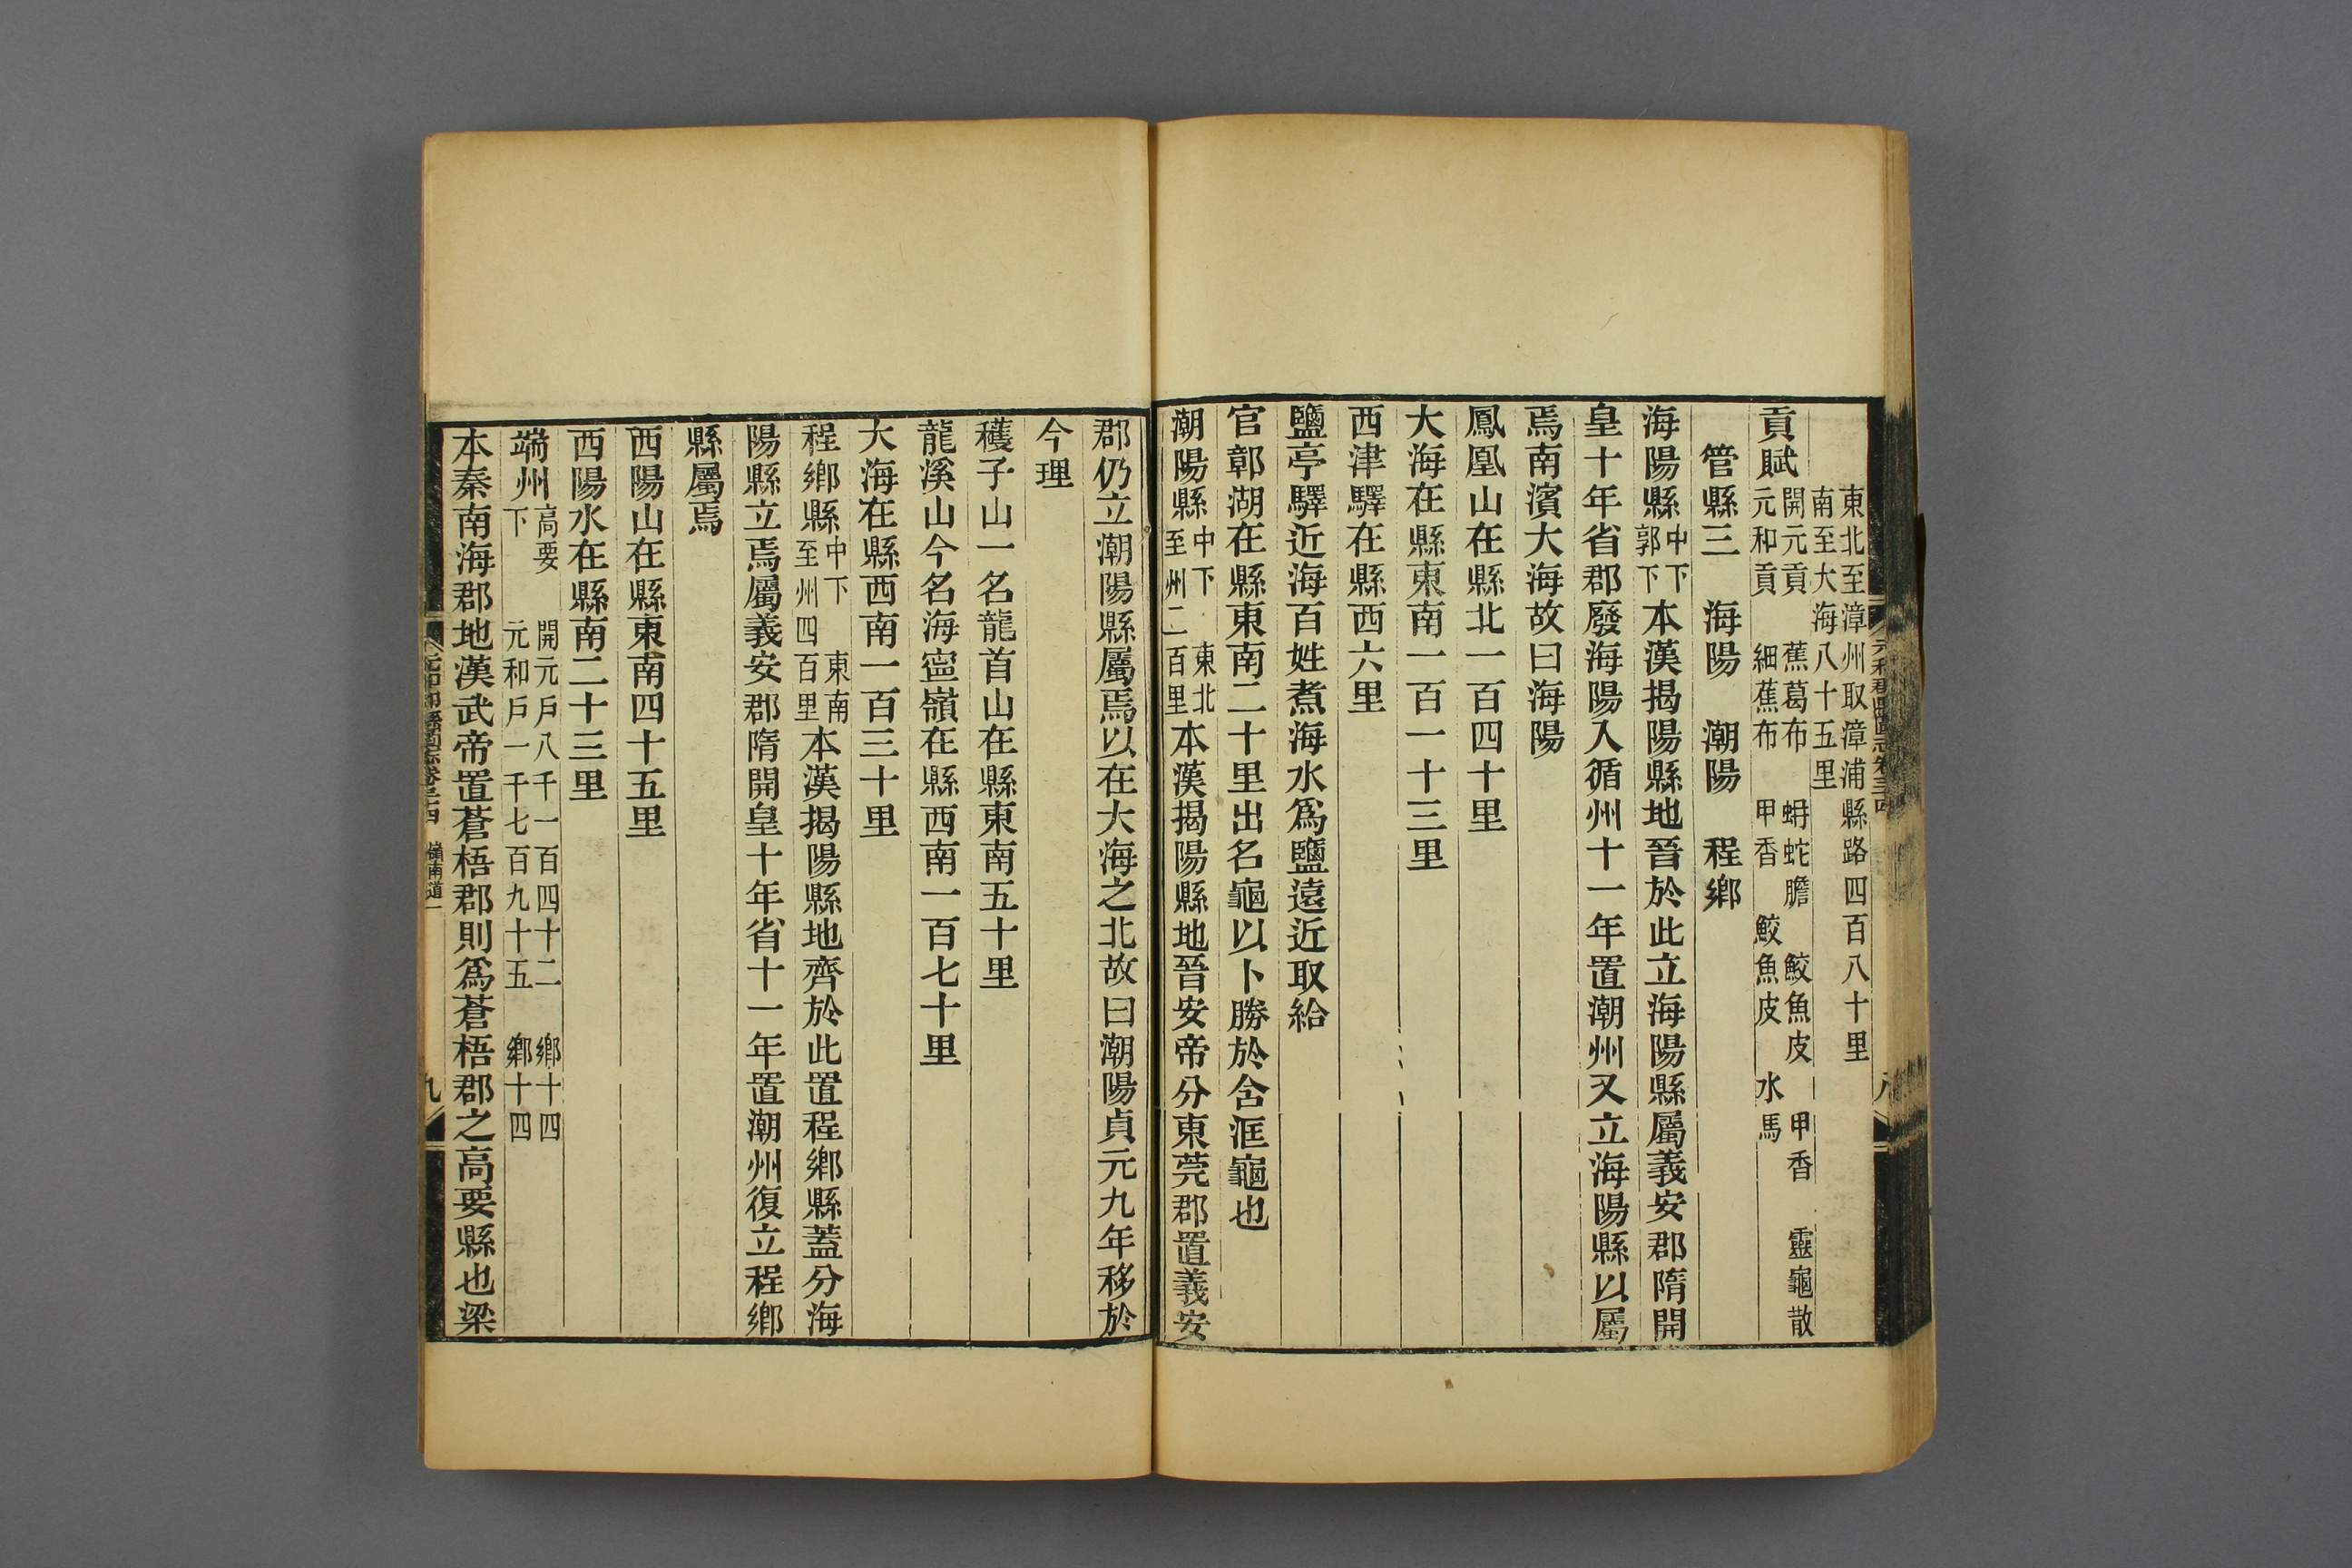 東北至漳州取漳浦縣路四百八十里
南至大海八十五里
貢賦 開元貢 蕉葛布 蚺蛇膽 鮫魚皮 甲香 靈龜散
元和貢 細蕉布 甲香 鮫魚皮 水馬
管縣三 海陽 潮陽 程鄉
海陽縣 中下 郭下 本漢揭陽縣地晉於此立海陽縣屬義安郡隋開
皇十年省郡廢海陽入循州十一年置潮州又立海陽縣以屬
焉南濱大海故曰海陽
鳳凰山在縣北一百四十里
大海在縣東南一百一十三里
西津驛在縣西六里
鹽亭驛近海百姓煮海水爲鹽遠近取給
官鄣湖在縣東南二十里出名龜以卜勝於含洭龜也
潮陽縣 中下 東北 至州二百里 本漢揭陽縣地晉安帝分東莞郡置義安
郡仍立潮陽縣屬焉以在大海之北故曰潮陽貞元九年移於
今理
穫子山一名龍首山在縣東南五十里
龍溪山今名海寍嶺在縣西南一百七十里
大海在縣西南一百三十里
程鄉縣 中下 東南 至州四百里 本漢揭陽縣地齊於此置程鄉縣蓋分海
陽縣立焉屬義安郡隋開皇十年省十一年置潮州復立程鄉
縣屬焉
西陽山在縣東南四十五里
西陽水在縣南二十三里
端州 高要 下 開元戶八千一百四十二 鄉十四
元和戶一千七百九十五 鄉十四
本秦南海郡地漢武帝置蒼梧郡則爲蒼梧郡之高要縣也梁
嶺南道一
九